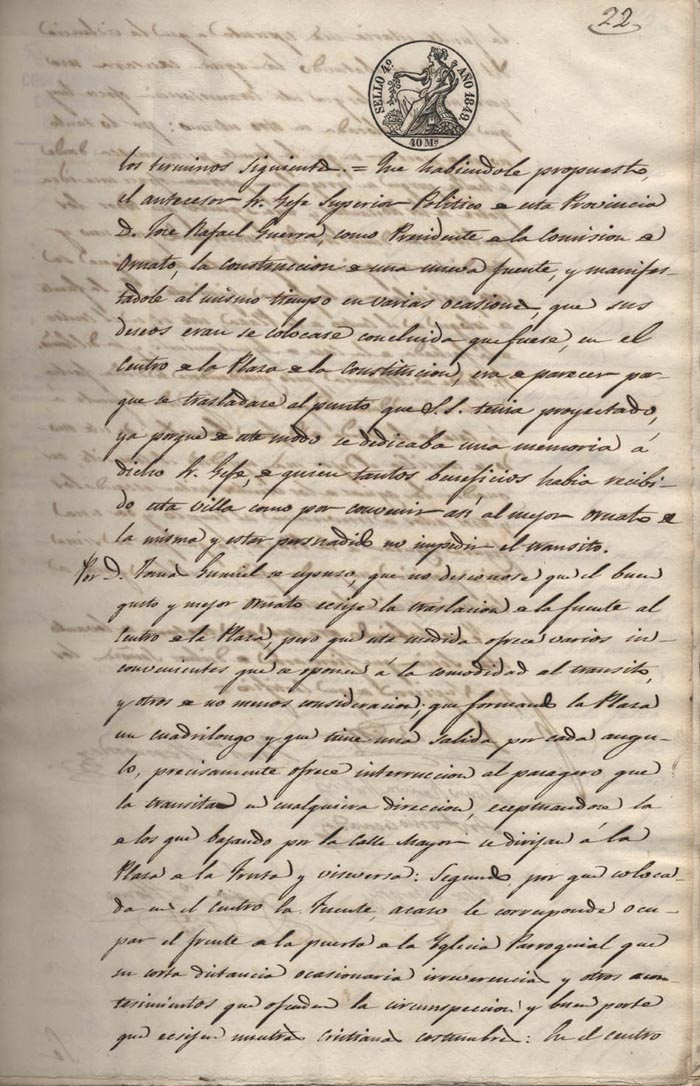 22
SELLO 4º AÑO 1849
40 Ms
los terminos siguientes. = Que habiendole propuesto,
el antecesor Sr. Gefe Superior Politico de esta Provincia
D. Jose Rafael Guerra, como Presidente de la Comision de
Ornato, la construccion de una nueva fuente, y manifes-
tadole al mismo tiempo en varias ocasiones, que sus
deseos eran se colocase concluida que fuese, en el
Centro de la Plaza de la Constitucion, era de parecer por-
que se trasladase al punto que S.S. tenia proyectado,
ya porque de este modo se dedicaba una memoria á
dicho Sr. Gefe, de quien tantos beneficios habia recibi-
do esta villa como por convenir asi al mejor ornato de
la misma y estar persuadido no impedir el transito.
Por D. Tomas Gumiel se espuso, que no desconose que el buen
gusto y mejor ornato ecsije la traslacion de la fuente al
Centro de la Plaza, pero que esta medida ofrece varios in-
convenientes que se oponen á la comodidad al transito,
y otros de no menos consideracion, que formando la Plaza
un cuadrilongo y que tiene una salida por cada angu-
lo, precisamente ofrece interrucion al pasagero que
la transita en cualquiera direccion, eceptuandose la
de los que bajando por la Calle Mayor se dirijen á la
Plaza de la Fruta y viseversa: Segundo por que coloca-
da en el Centro la Fuente, acaso le corresponde ocu-
par el frente de la puerta de la Yglecia Parroquial que
su corta distancia ocasionaria irreverencia y otros acon-
tesimientos que ofenden la circunspeccion y buen porte
que ecsijen nuestra cristiana costumbre: En el centro